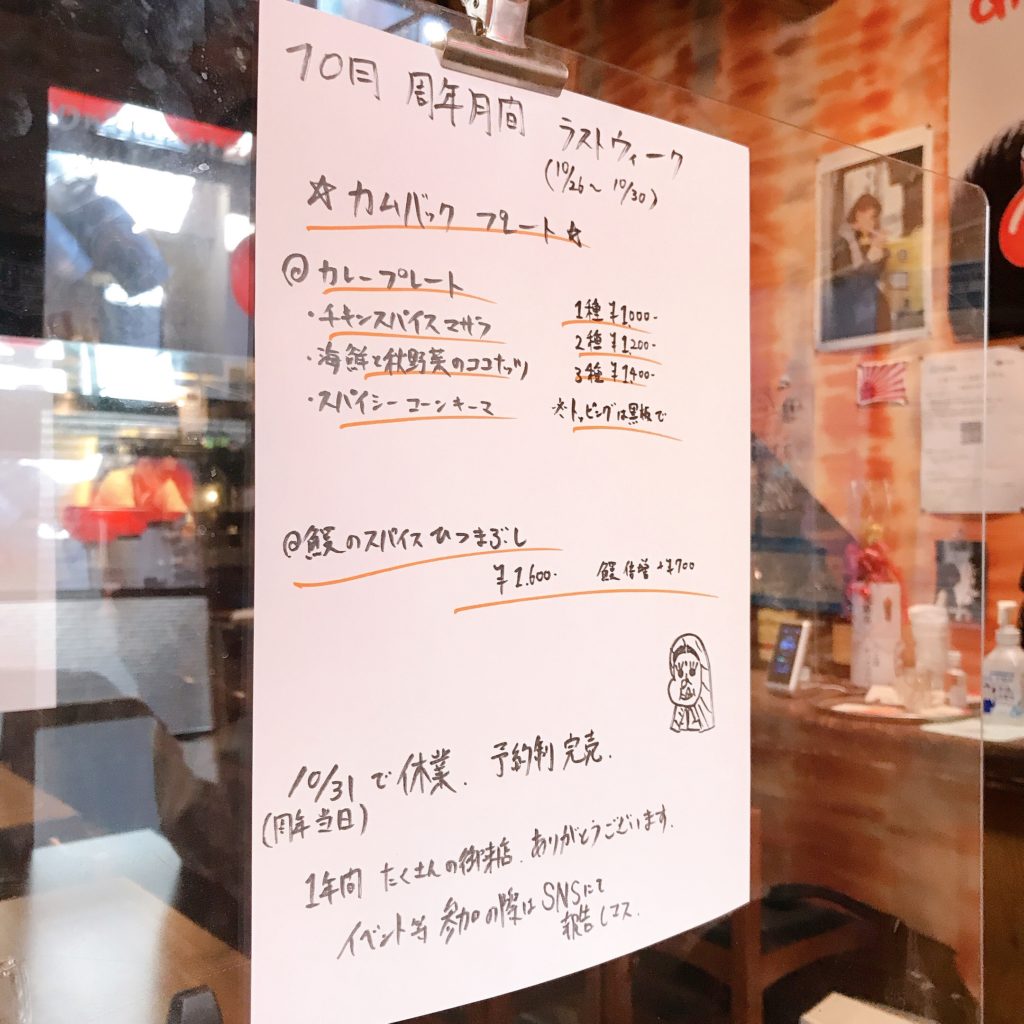 10月 周年月間 ラストウィーク
(10/26～10/30)
☆カムバック プレート☆
@カレープレート
・チキンスパイスマサラ 1種 ¥1,000-
・海鮮と秋野菜のココナッツ 2種 ¥1,200-
・スパイシーコーンキーマ 3種 ¥1,400-
※トッピングは黒板で
@鰻のスパイスひつまぶし
¥1.600- 鰻倍増 +¥700
10/31で休業. 予約制完売.
(周年当日)
1年間 たくさんの御来店. ありがとうございます.
イベント等 参加の際はSNSにて
報告しコス.